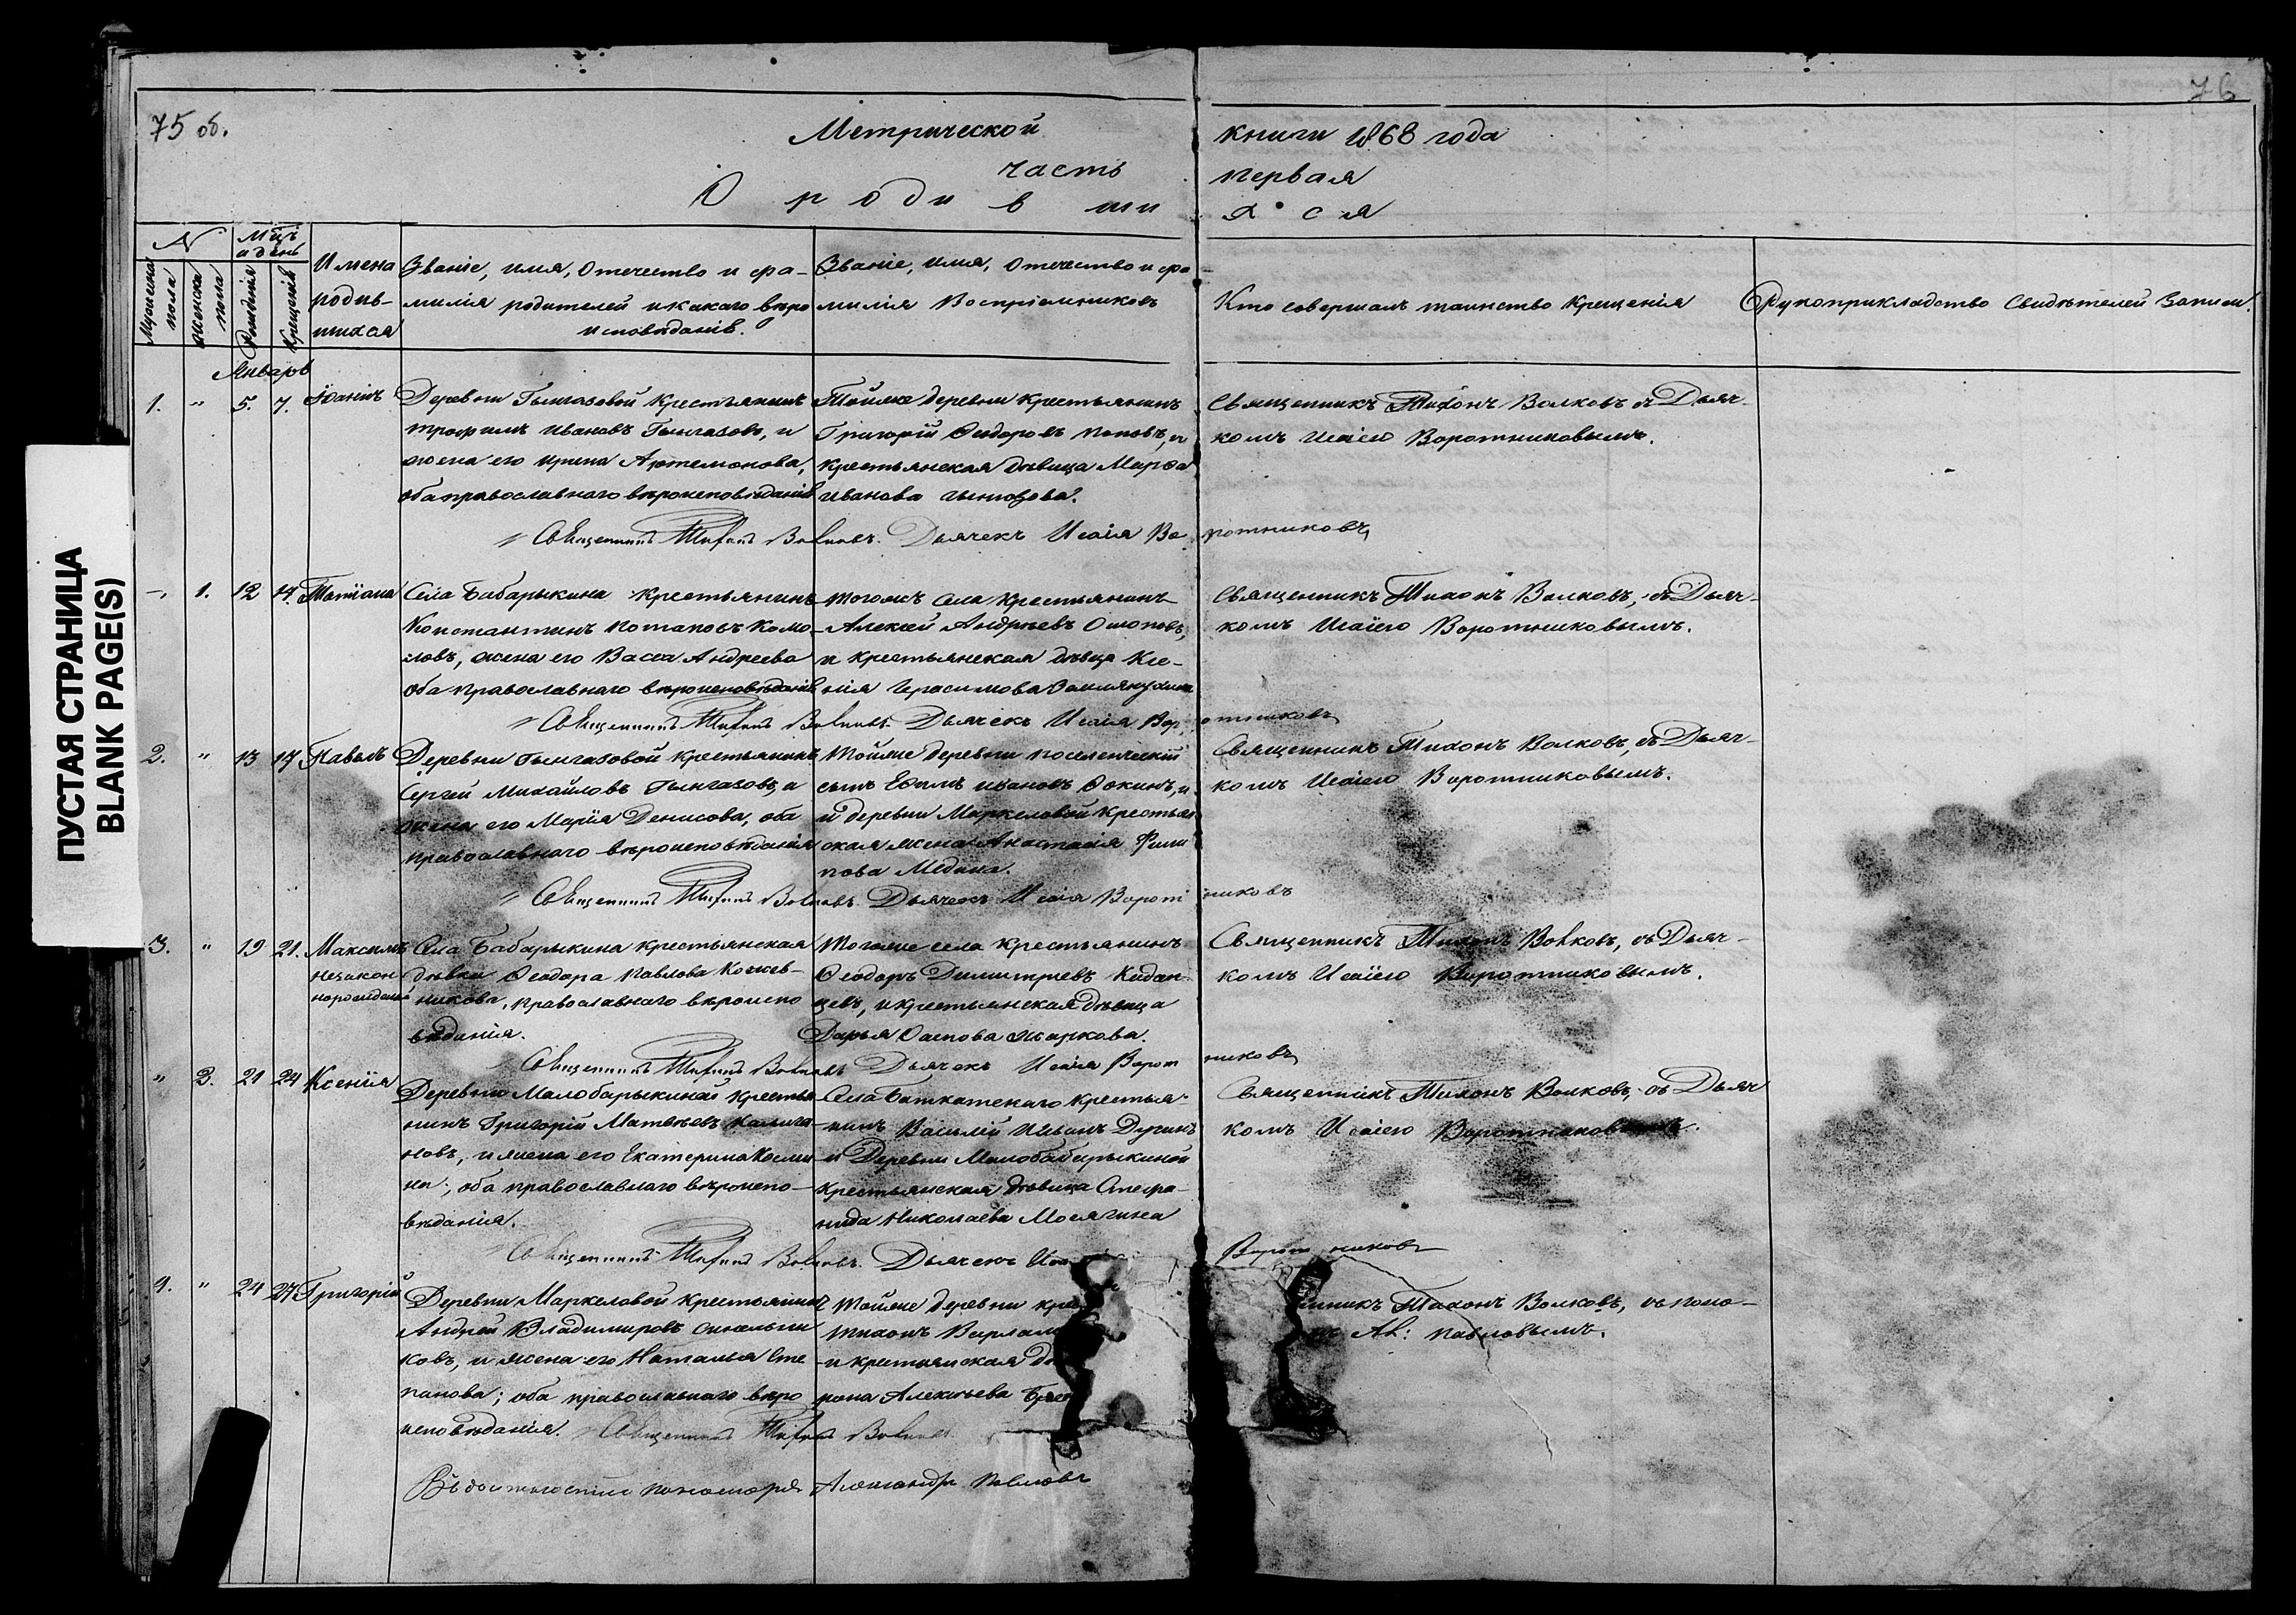 ПУСТАЯ СТРАНИЦА
BLANK PAGE(S)
75 об.
76
Метрической книги 1868 года
часть первая
О родившихся
№
Мужеска пола
женска пола
Мцъ и день
Рожденія
Крещенія
Имена родив-
шихся
Званіе, имя, Отечество и фа-
милія родителей и какаго веро
исповѣданія.
Званіе, имя, Отечество и фа-
милія Воспріемниковъ
Кто совершалъ таинство крещенія
Рукоприкладство Свидѣтелей Записи.
Январь
1. " 5. 7. Іоаннъ
Деревни Тынгазовой Крестьянинъ
трофимъ Ивановъ Тынгазовъ, и
жена его ирина Артемонова,
оба православнаго вѣроисповѣданія
Тойже деревни крестьянинъ
Григорій Ѳедоровъ Поповъ, и
крестьянская дѣвица Марѳа
Иванова
Священникъ Тихонъ Волковъ съ Дьяч-
комъ Исаіею Воротниковымъ.
Священникъ Тихонъ Волковъ. Дьячекъ Исаія Воротниковъ
-. 1. 12 14. Татіана
Села Бабарыкина Крестьянинъ
Константинъ Потаповъ Комо-
ловъ, жена его Васса Андреева
Оба православнаго вѣроисповѣданія
тогожъ села крестьянинъ
Алексѣй Андрѣевъ
и крестьянская дѣвца Ксе-
нія Герасимова
Священникъ Тихонъ Волковъ, съ Дьяч-
комъ Исаіею Воротниковымъ.
Священникъ Тихонъ Волковъ. Дьячекъ Исаія Воротниковъ
2. " 13 17 Павелъ
Деревни Тынгазовой Крестьянинъ
Сергей Михайловъ Тынгазовъ, и
жена его Марія Денисова, оба
православнаго вѣроисповѣданія
Тойже деревни поселенческій
сынъ Ефимъ Ивановъ Ѳокинъ, и
деревни Маркеловой Крестьян
ская жена Анастасія Фили
пова Медина.
Священникъ Тихонъ Волковъ, съ Дьяч-
комъ Исаіею Воротниковымъ.
Священникъ Тихонъ Волковъ. Дьячекъ Исаія Воротниковъ
3. " 19 21. Максимъ
незакон
норожденый
Села Бабарыкина крестьянская
дѣвка Ѳеодора Павлова Кожев-
никова, православнаго вѣроиспо
вѣданія.
Тогоже села Крестьянинъ
Ѳеодоръ Димитріевъ Кидан-
цевъ, и крестьянская дѣвица
Дарья Осипова Жаркова.
Священникъ Тихонъ Волковъ, съ Дьяч-
комъ Исаіею Воротниковымъ.
Священникъ Тихонъ Волковъ Дьячекъ Исаія Воротниковъ
" 2. 21 24 Ксенія
Деревни Малобарыкиной крестья-
нинъ Григорій Матвѣевъ
новъ, и жена его Екатерина Косми
на; оба православнаго вѣроиспо-
вѣданія.
Села Баткатскаго крестья-
нинъ Василій Ивановъ
и Деревни Малобабарыкиной
крестьянская дѣвица Стефа-
нида Николаева Мосягина
Священникъ Тихонъ Волковъ, съ Дьяч
комъ Исаіею
Священникъ Тихонъ Волковъ. Дьячекъ Воротниковъ
4. " 24 27 Григорій
Деревни Маркеловой Крестьянинъ
Андрей Владимировъ Синельни
ковъ, и жена его Наталья Сте
панова; оба православнаго вѣро
исповѣданія.
Тойже деревни кре
Тихонъ Варлам
и крестьянская дѣ
рона Алексѣева
нникъ Тихонъ Волковъ, съ поно-
Ал: Павловымъ.
Священникъ Тихонъ Волковъ.
Въ должности пономоря Александръ Павловъ